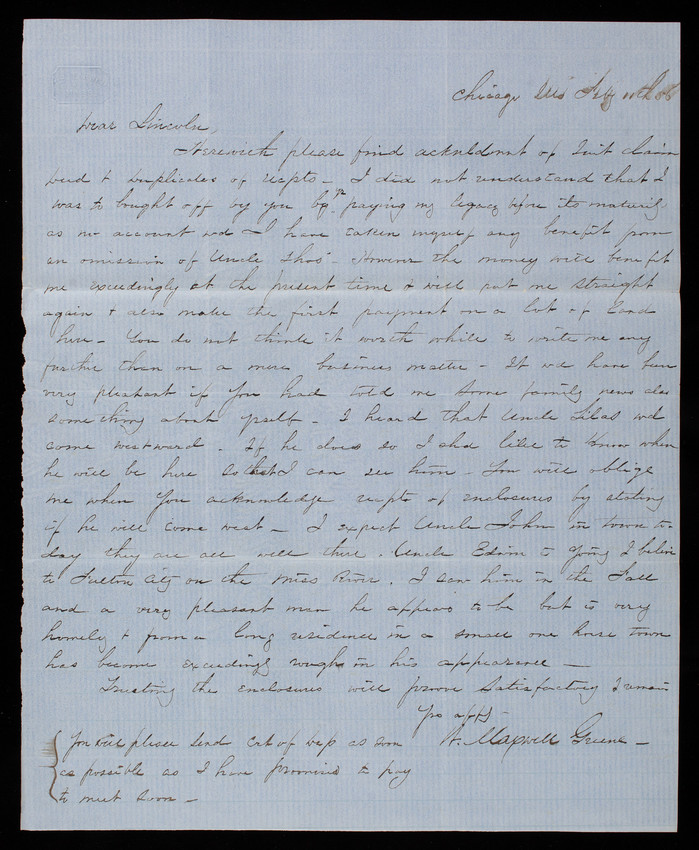 Chicago Ills Feby 11th 56
Dear Lincoln,
Herewith please find acknldmnt of Quit claim
deed & duplicates of recpts - I did not understand that I
was to bought off by you by yr paying my legacy before its maturity
as no account wd I have taken myself any benefit from
an omission of Uncle Thos - However the money will benefit
me exceedingly at the present time & will put me straight
again & also make the first payment on a lot of Land
here - You do not think it worth while to write me any
further than on a mere business matter - It wd have been
very pleasant if you had told me some family news also
something about yself - I heard that Uncle Silas wd
come westward - If he does so I shd like to know when
he will be here so that I can see him - You will oblige
me when you acknowledge recpts of enclosures by stating
if he will come west - I expect Uncle John in town to-
day they are all well there. Uncle Edwin is going I believe
to Fulton City on the Miss River. I saw him in the Fall
and a very pleasant man he appears to be but is very
homely & from a long residence in a small one horse town
has become exceedingly rough in his appearance -
Trusting the enclosures will prove satisfactory I remain
Yrs affy
W. Maxwell Greene -
You will please send as soon
as possible as I have promised to pay
to meet soon -